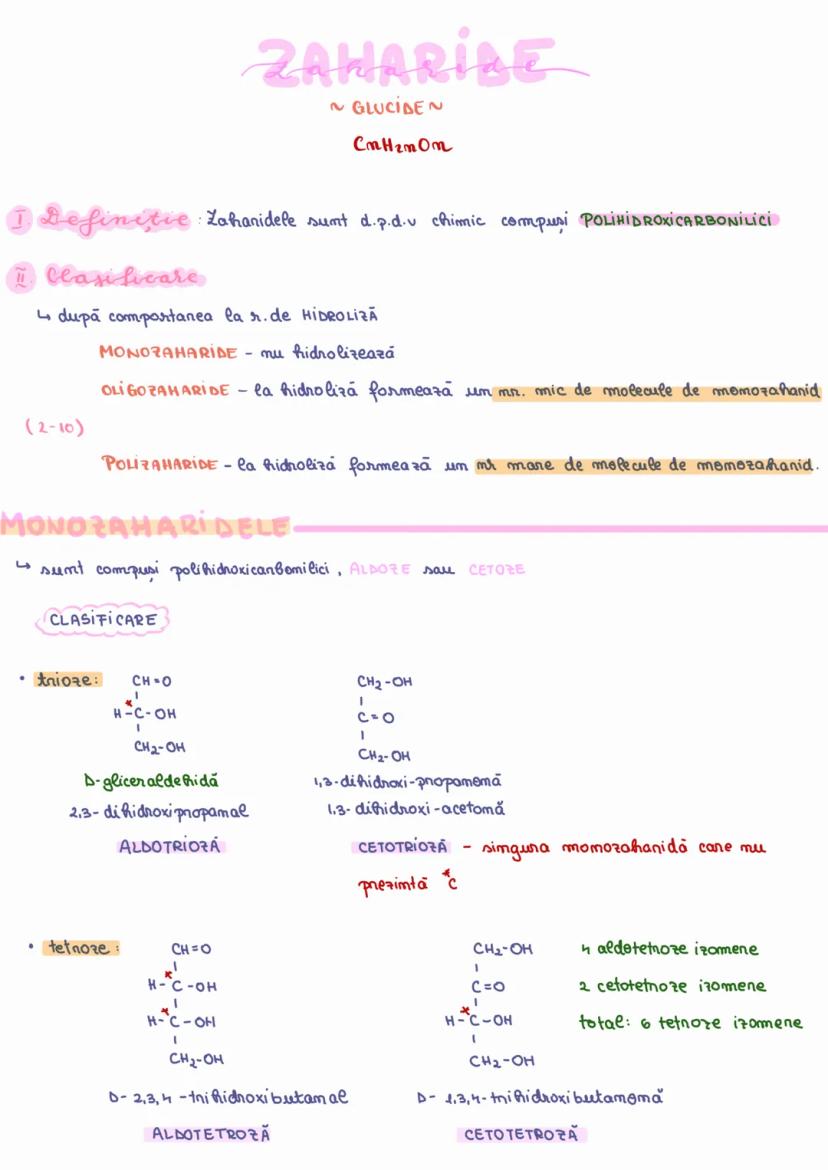 ZAHARIDE
zaharide
~ GLUCIDE ~
CnH2nOn
I. Definiție : Zaharidele sunt d.p.d.v chimic compuși POLIHIDROXICARBONILICI
II. Clasificare
↳ după comportarea la r. de HIDROLIZĂ
MONOZAHARIDE - nu hidrolizează
OLIGOZAHARIDE - la hidroliză formează un nr. mic de molecule de monozaharid
(2-10)
POLIZAHARIDE - la hidroliză formează un nr mare de molecule de monozaharid.
MONOZAHARIDELE
↳ sunt compuși polihidroxicarbonilici, ALDOZE sau CETOZE
CLASIFICARE
• trioze: CH=O CH2-OH
H-*C-OH C=O
CH2-OH CH2-OH
D-gliceraldehidă 1,3-dihidroxi-propanonă
2,3-dihidroxipropanal 1,3-dihidroxi-acetonă
ALDOTRIOZĂ CETOTRIOZĂ - singura monozaharidă care nu
prezintă *C
• tetroze: CH=O CH2-OH 4 aldotetroze izomere
H-*C-OH C=O 2 cetotetroze izomere
H-*C-OH H-*C-OH total: 6 tetroze izomere
CH2-OH CH2-OH
D-2,3,4-trihidroxibutanal D-1,3,4-trihidroxibutanonă
ALDOTETROZĂ CETOTETROZĂ